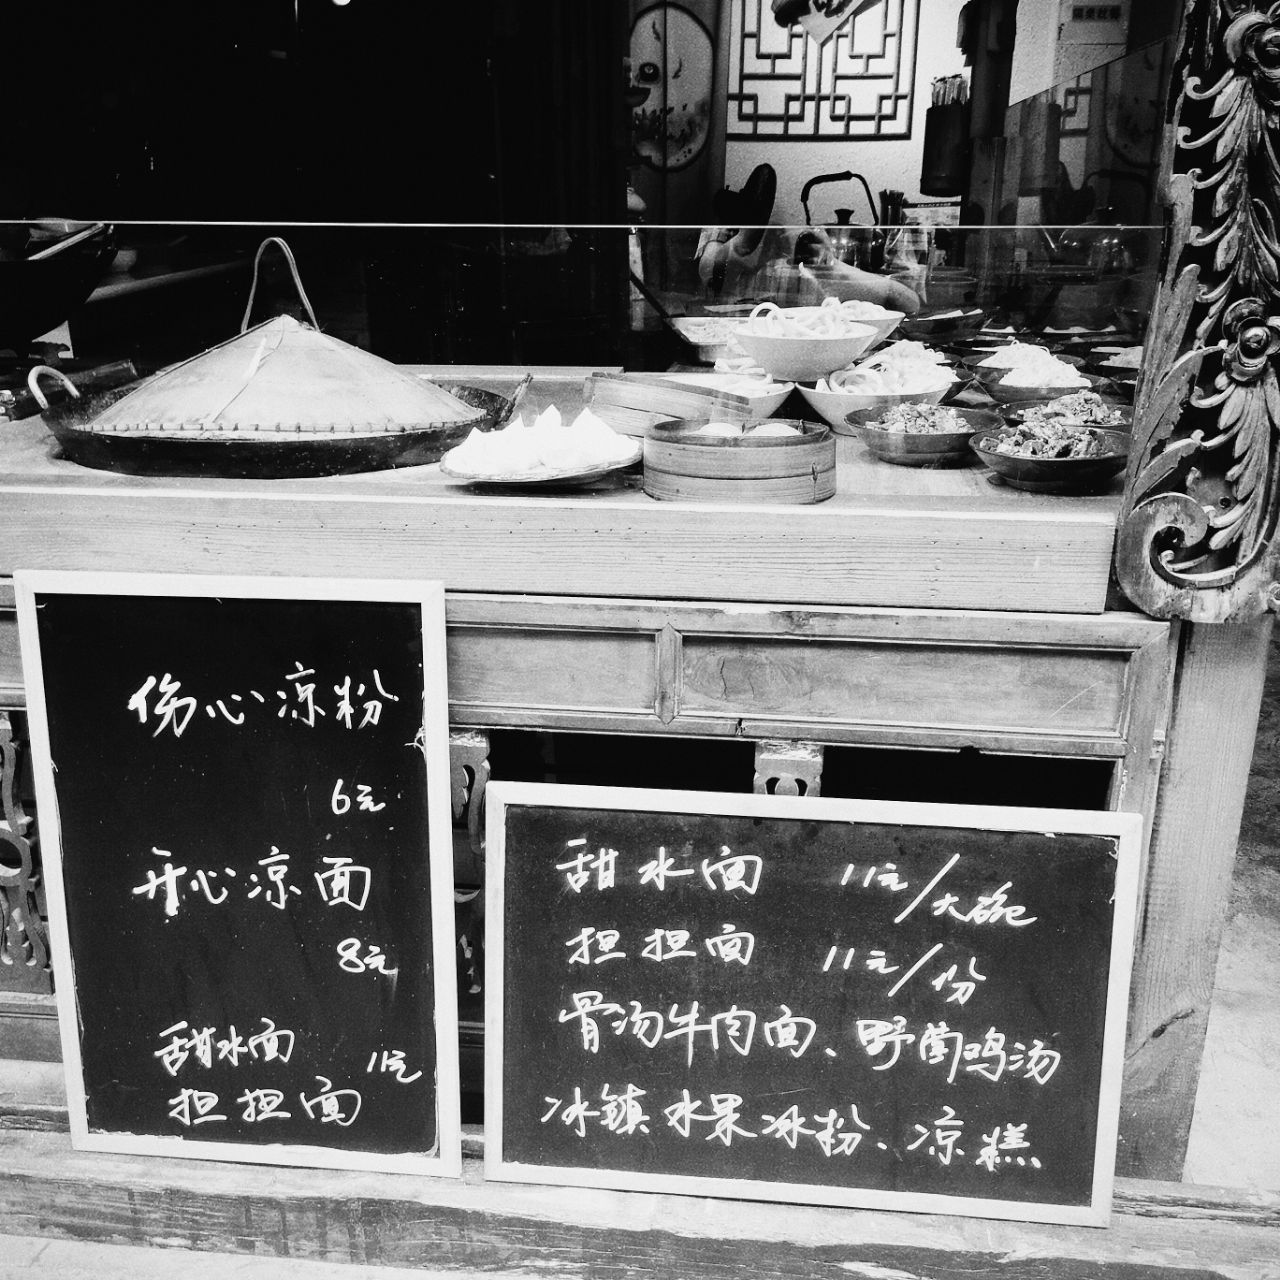 伤心凉粉
6元
开心凉面
8元
甜水面
11元
担担面
甜水面 11元/大碗
担担面 11元/份
骨汤牛肉面、野菌鸡汤
冰镇水果冰粉、凉糕